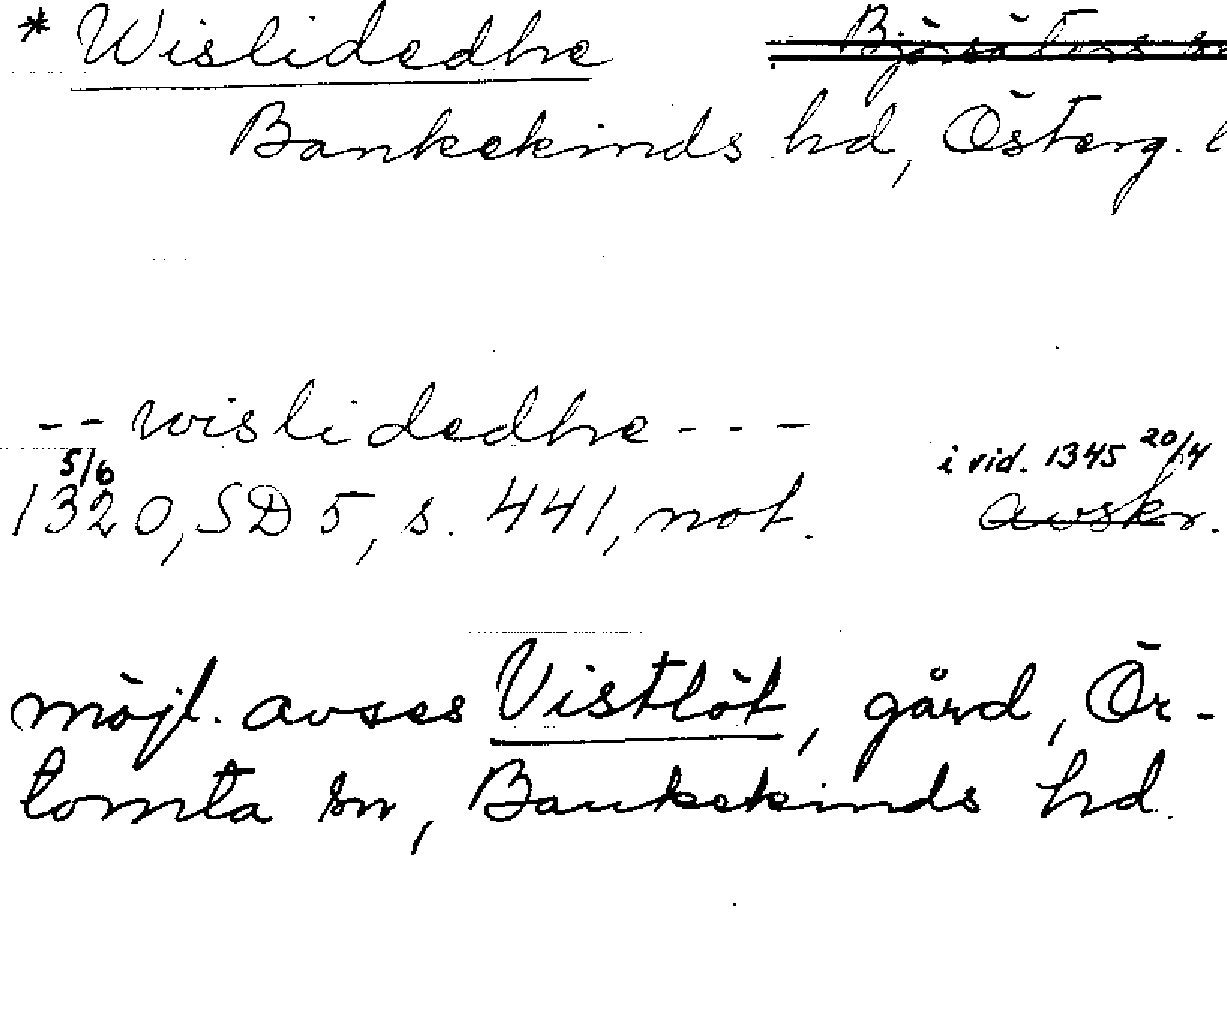 * Wislidedhe Björsäters sn
Bankekinds hd, Österg. l
-- wislidedhe ---
5/6 i vid. 1345 20/4
1320, SD 5, s. 441, not. avskr.
möjl. avses Vistlöt, gård, Ör-
tomta sn, Bankekinds hd.